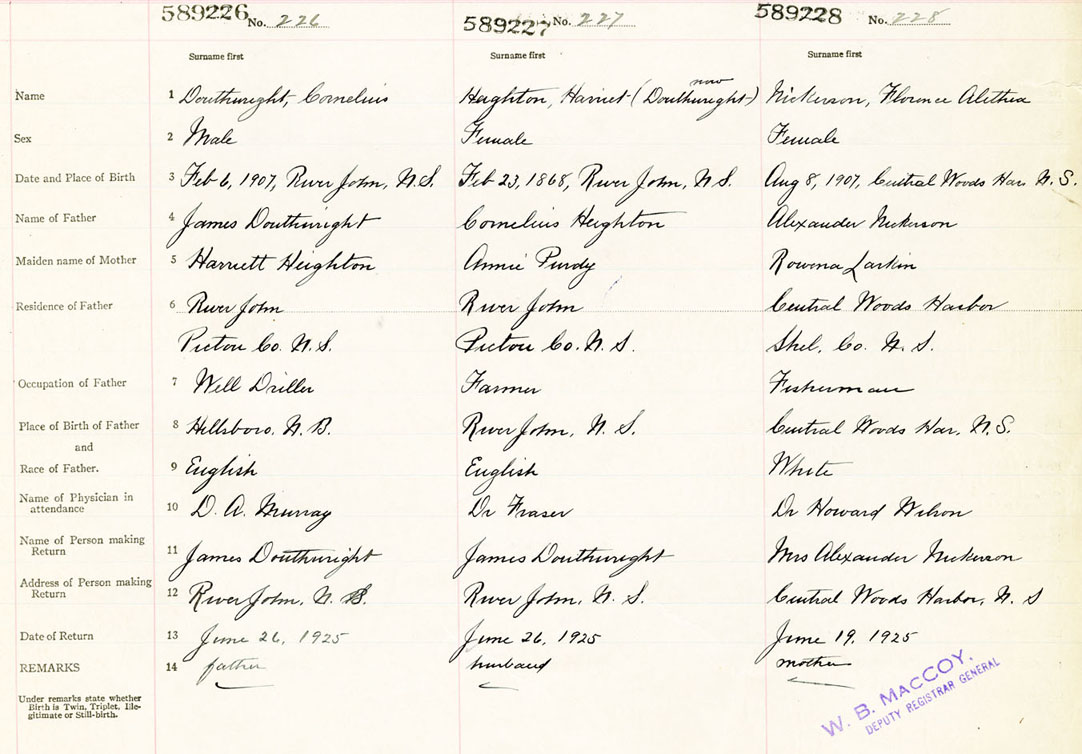 589226 No. 226 589227 No. 227 589228 No. 228
Surname first Surname first Surname first
Name 1 Douthwright, Cornelius Heighton, Harriet (now Douthwright) Nickerson, Florence Alethea
Sex 2 Male Female Female
Date and Place of Birth 3 Feb 6, 1907, River John, N.S. Feb 23, 1868, River John, N.S. Aug 8, 1907, Central Woods Har. N.S.
Name of Father 4 James Douthwright Cornelius Heighton Alexander Nickerson
Maiden name of Mother 5 Harriett Heighton Annie Purdy Rowena Larkin
Residence of Father 6 River John River John Central Woods Harbor
Pictou Co. N.S. Pictou Co. N.S. Shel. Co. N.S.
Occupation of Father 7 Well Driller Farmer Fisherman
Place of Birth of Father 8 Hillsboro, N.B. River John, N.S. Central Woods Har, N.S.
and
Race of Father. 9 English English White
Name of Physician in
attendance 10 D. A. Murray Dr Fraser Dr Howard Wilson
Name of Person making
Return 11 James Douthwright James Douthwright Mrs Alexander Nickerson
Address of Person making
Return 12 River John, N. S. River John, N. S. Central Woods Harbor, N. S
Date of Return 13 June 26, 1925 June 26, 1925 June 19, 1925
REMARKS 14 father husband mother
Under remarks state whether
Birth is Twin, Triplet, Ille-
gitimate or Still-birth.
W. B. MACCOY.
DEPUTY REGISTRAR GENERAL